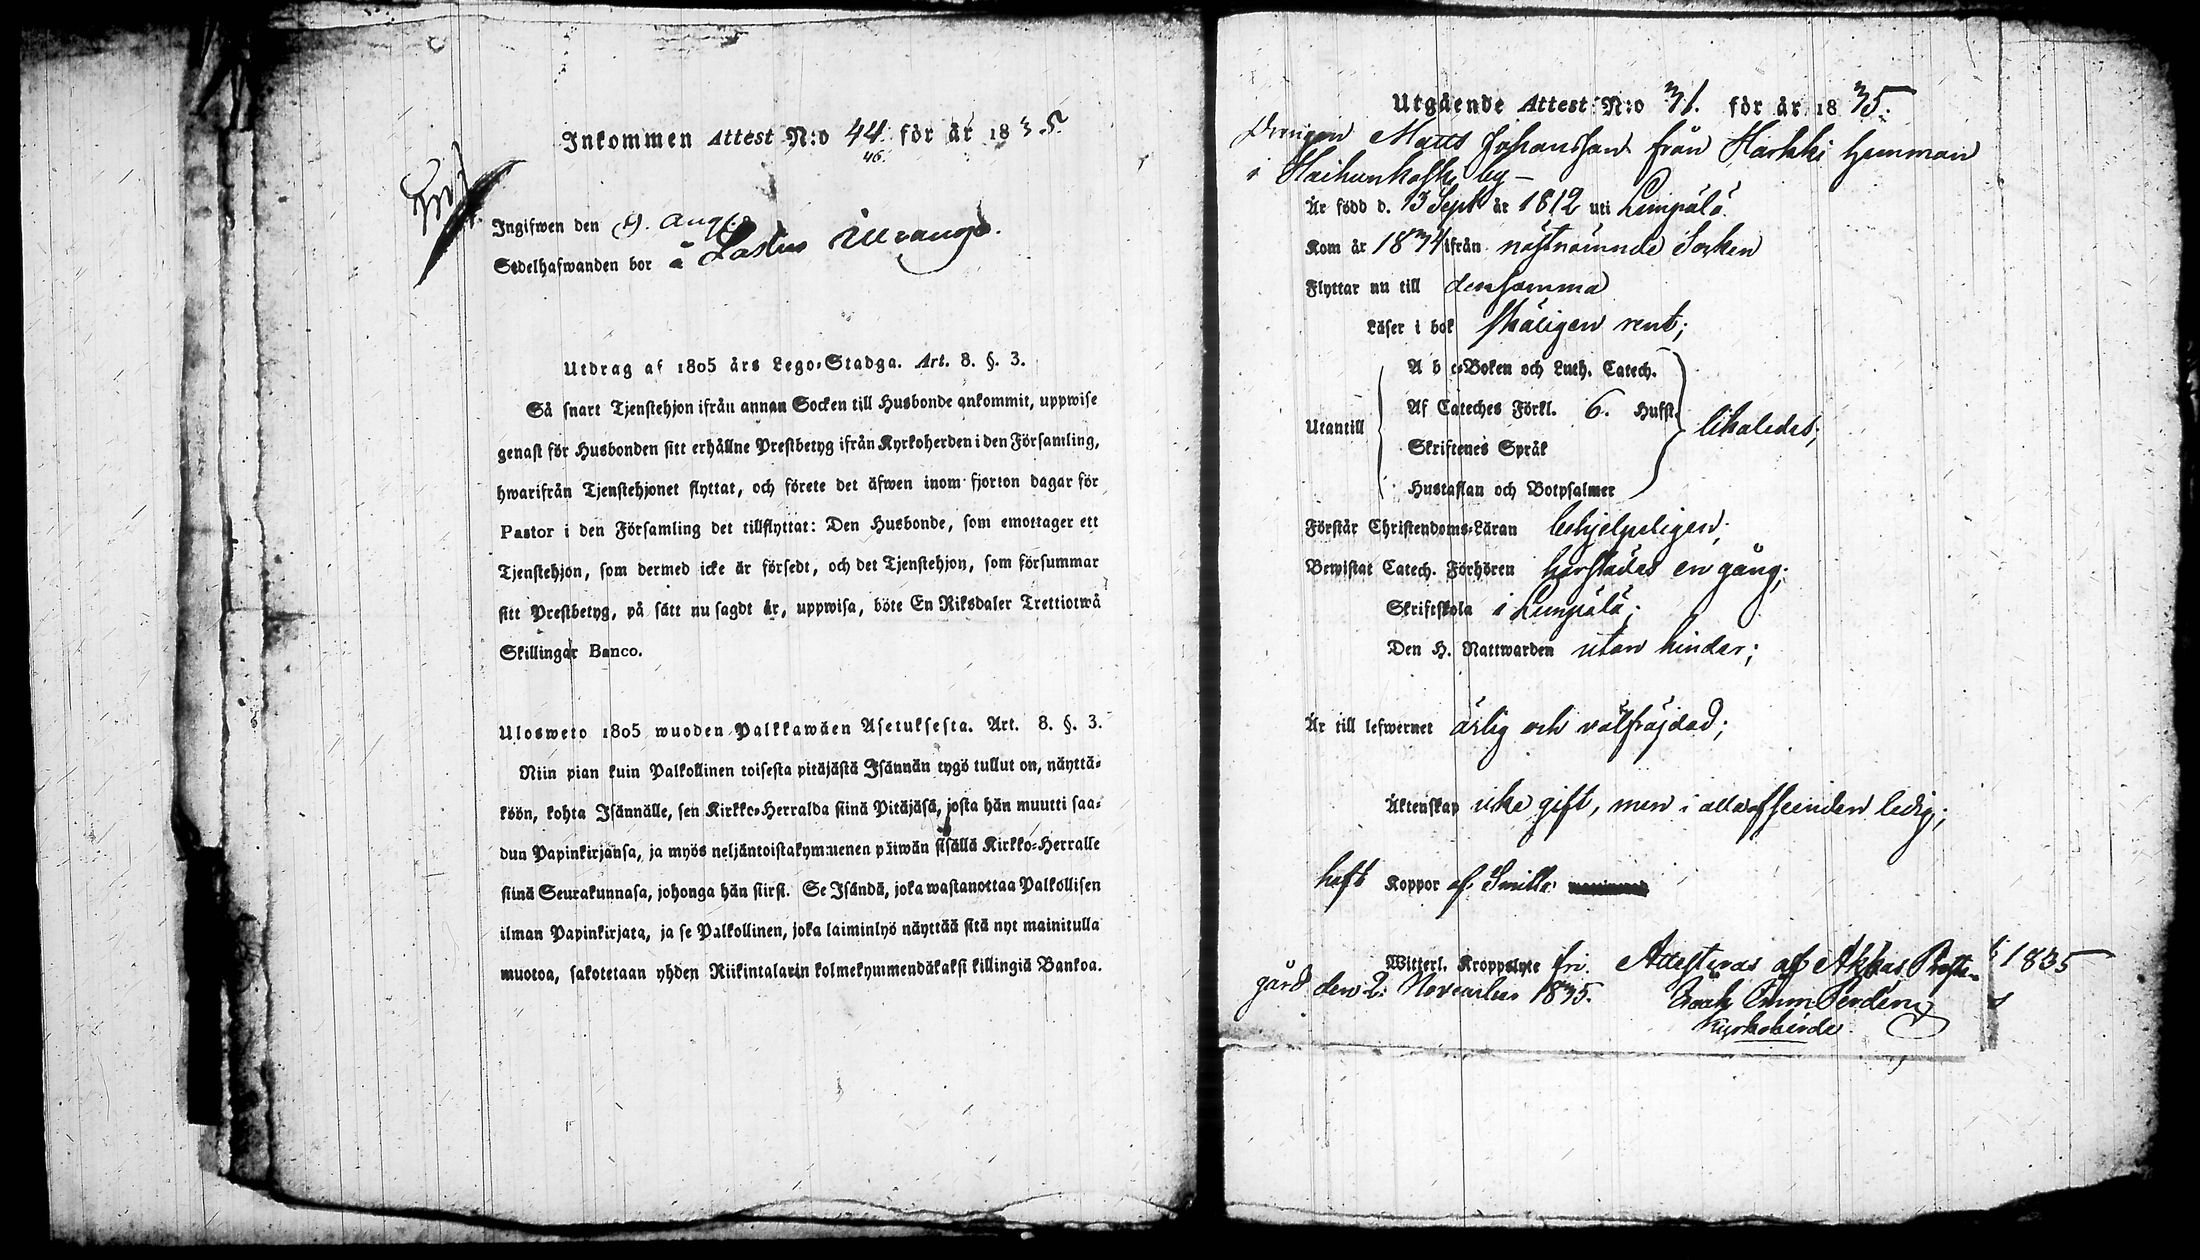 Inkommen Attest N:o 44. för år 1835.
46.
Ingifwen den 9. Aug
Sedelhafwanden bor å
Utdrag af 1805 års Lego-Stadga. Art. 8. §. 3.
Så snart Tjenstehjon ifrån annan Socken till Husbonde ankommit, uppwise
genast för Husbonden sitt erhållne Prestbetyg ifrån Kyrkoherden i den Församling,
hwarifrån Tjenstehjonet flyttat, och förete det äfwen inom fjorton dagar för
Pastor i den Församling det tillflyttat: Den Husbonde, som emottager ett
Tjenstehjon, som dermed icke är försedt, och det Tjenstehjon, som försummar
sitt Prestbetyg, på sätt nu sagdt är, uppwisa, böte En Riksdaler Trettiotwå
Skillingar Banco.
Ulosweto 1805 wuoden Palkkawäen Asetuksesta. Art. 8. §. 3.
Niin pian kuin Palkollinen toisesta pitäjästä Isännän tygö tullut on, näyttä-
köön, kohta Isännälle, sen Kirkko-Herralda siinä Pitäjäsä, josta hän muutti saa-
dun Papinkirjansa, ja myös neljäntoistakymmenen päiwän sisällä Kirkko-Herralle
siinä Seurakunnasa, johonga hän siirsi. Se Isändä, joka wastanottaa Palkollisen
ilman Papinkirjata, ja se Palkollinen, joka laiminlyö näyttää sitä nyt mainitulla
muotoa, sakotetaan yhden Riikintalarin kolmekymmendäkaksi killingiä Bankoa.
Utgående Attest N:o 31. för år 1835.
Drengen Matts Johansson från Harkki hemman
i by
Är född d. 13 Sept år 1812 uti Lempälä
Kom år 1834 ifrån nästnämnde Socken
Flyttar nu till densamma
Läser i bok skäligen rent;
A b c-Boken och Luth. Catech.
Af Cateches Förkl. 6. Hufst.
Utantill likaledes;
Skriftenes Språk
Hustaflan och Botpsalmer
Förstår Christendoms-Läran behjelpeligen;
Bewistat Catech. Förhören härstädes en gång;
Skriftskola i Lempälä;
Den H. Nattwarden utan hinder;
Är till lefwernet ärlig och välfräjdad;
Äktenskap icke gift, men i alla afseenden ledig;
haft Koppor af Smitta
Witterl. Kroppslyte fri. Attesteras af Akkas Preste- 1835
gård den 2. November 1835.
Kyrkoherde